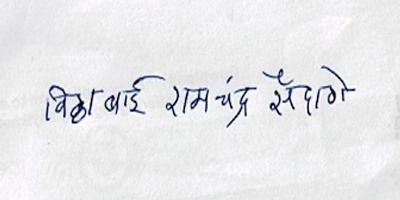 विठाबाई रामचंद्र सैंदाणे